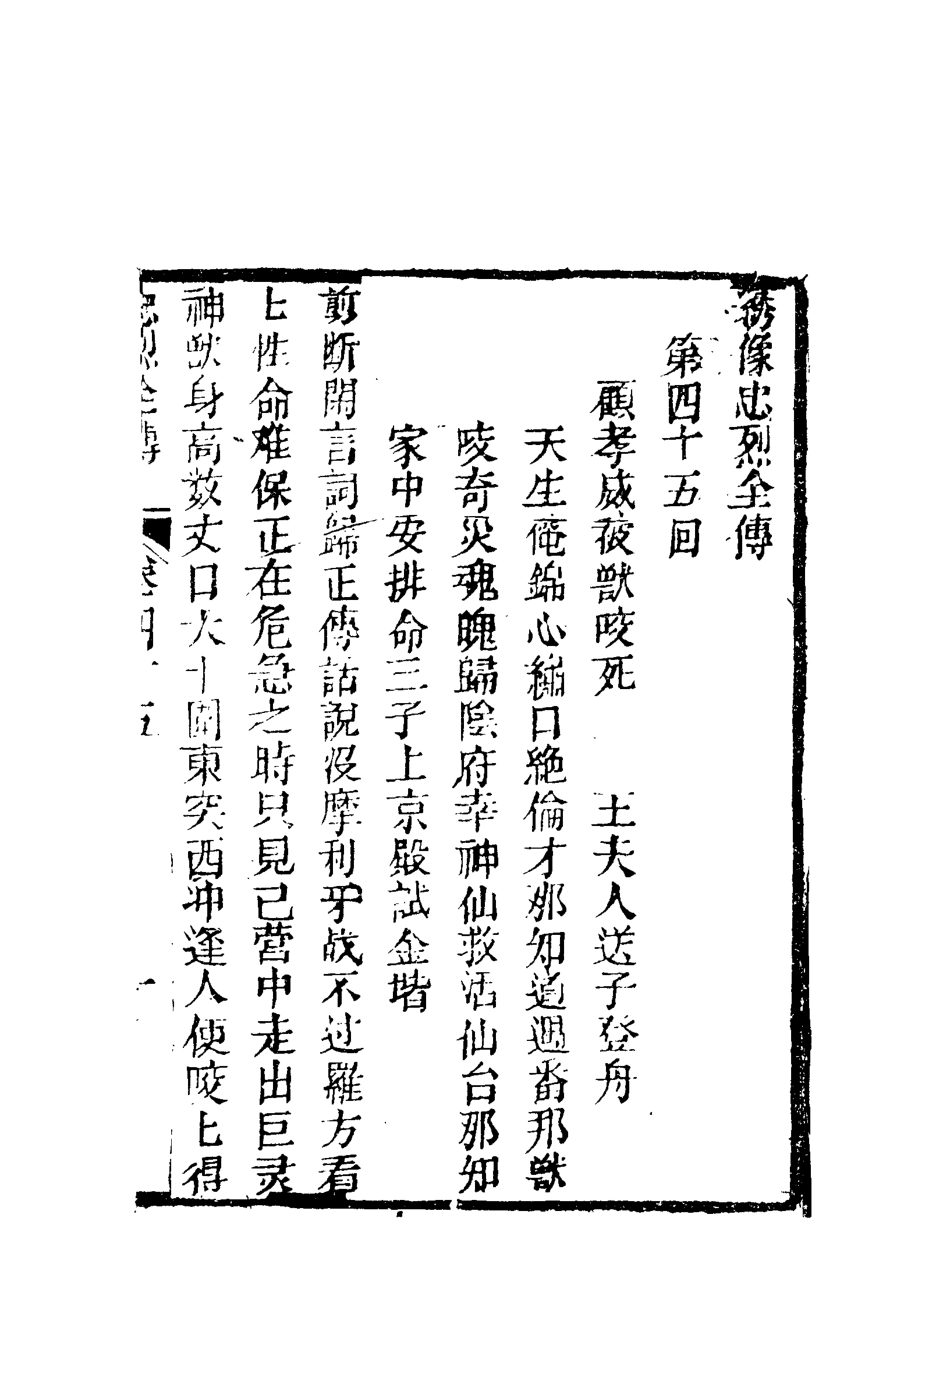 綉像忠烈全傳
第四十五回
顧孝威被獸咬死　王夫人送子登舟
天生俺錦心繡口絶倫才那知道遇畨邦獸
咬竒災魂魄歸陰府幸神仙救活仙台那知
家中安排命三子上京殿試金堦
剪断閑言詞歸正傳話說没摩利牙战不过羅方看
上性命难保正在危急之時只見己营中走出巨灵
神獸身高数丈口大十圍東突西冲逢人便咬上得
忠烈全傳　卷四十五　一